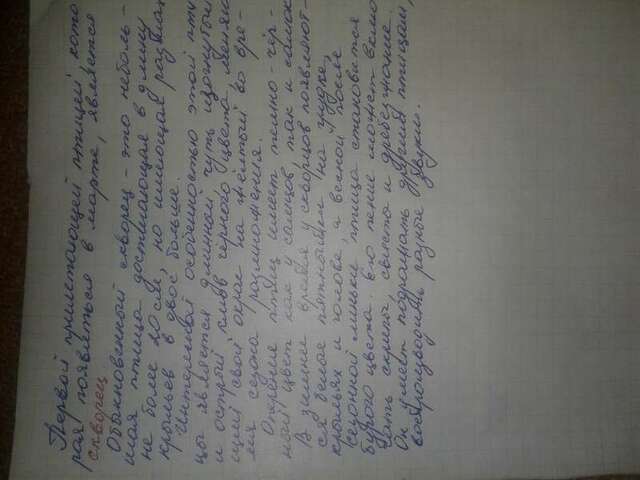 Первой прилетающей птицей, кото
рая появиться в марте, является
скворец
Обыкновенный скворец - это неболь-
шая птица достигающая в длину
не более 20 см, но имеющая размах
крыльев в двое больше.
Интересной особенностью этой пти
цы является длинный чуть изогнутый
и острый клюв чёрного цвета, меняю
щий свой окрас на жёлтый во вре-
мя сезона размножения.
Оперение птиц имеет темно-чёр-
ный цвет как у самцов, так и самок
В зимнее время у скворцов появляют-
ся белые пятнышки на грудке,
крыльях и голове, а весной после
сезонной линьки птица становится
бурого цвета. Его пение может вклю
чать скрипы, свисты и дребезжание.
Он умеет подражать другим птицам,
воспроизводить разные звуки.